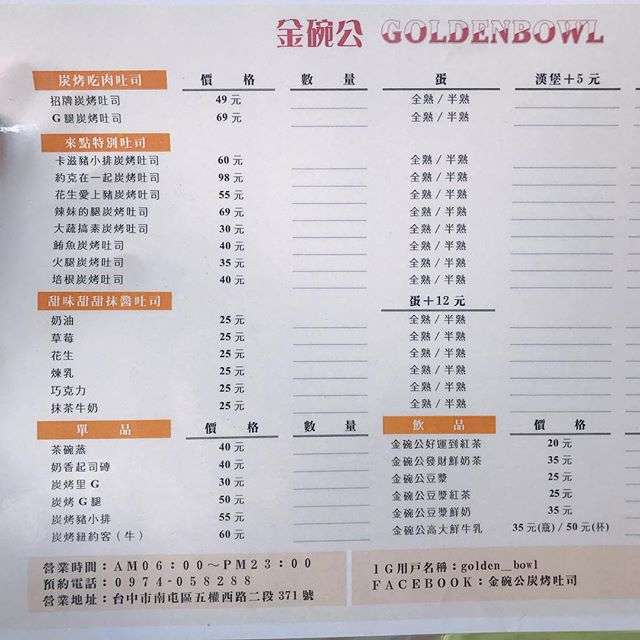 金碗公 GOLDENBOWL
炭烤吃肉吐司 價 格 數 量 蛋 漢堡+5元
招牌炭烤吐司 49元 全熟/半熟
G腿炭烤吐司 69元 全熟/半熟
來點特別吐司
卡滋豬小排炭烤吐司 60元 全熟/半熟
約克在一起炭烤吐司 98元 全熟/半熟
花生愛上豬炭烤吐司 55元 全熟/半熟
辣妹的腿炭烤吐司 69元 全熟/半熟
大蔬搞素炭烤吐司 30元 全熟/半熟
鮪魚炭烤吐司 40元 全熟/半熟
火腿炭烤吐司 35元 全熟/半熟
培根炭烤吐司 40元 全熟/半熟
甜味甜甜抹醬吐司 蛋+12元
奶油 25元 全熟/半熟
草莓 25元 全熟/半熟
花生 25元 全熟/半熟
煉乳 25元 全熟/半熟
巧克力 25元 全熟/半熟
抹茶牛奶 25元 全熟/半熟
單 品 價 格 數 量 飲 品 價 格
茶碗蒸 40元 金碗公好運到紅茶 20元
奶香起司磚 40元 金碗公發財鮮奶茶 35元
炭烤里G 30元 金碗公豆漿 25元
炭烤G腿 50元 金碗公豆漿紅茶 25元
炭烤豬小排 55元 金碗公豆漿鮮奶 35元
炭烤紐約客(牛) 60元 金碗公高大鮮牛乳 35元(瓶)/50元(杯)
營業時間:AM06:00~PM23:00
預約電話:0974-058288
營業地址:台中市南屯區五權西路二段371號
IG用戶名稱:golden__bowl
FACEBOOK:金碗公炭烤吐司